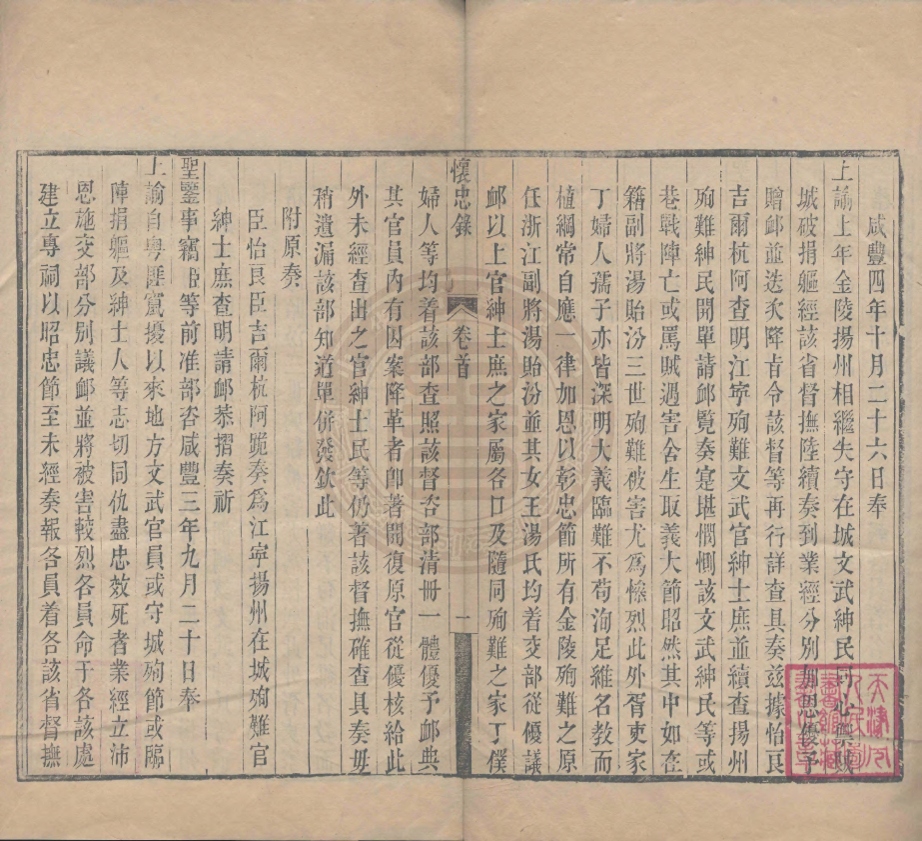 咸豐四年十月二十六日奉
上諭上年金陵揚州相繼失守在城文武紳民同心
城破捐軀經該省督撫陸續奏到業經分別加恩優予
贈䘏並迭次降旨令該督等再行詳查具奏兹據怡良
吉爾杭阿查明江寧殉難文武官紳士庶並續查揚州
殉難紳民開單請䘏覽奏寔堪憫惻該文武紳民等或
巷戰陣亡或罵賊遇害舍生取義大節昭然其中如在
籍副將湯貽汾三世殉難被害尤爲慘烈此外胥吏家
丁婦人孺子亦皆深明大義臨難不苟洵足維名教而
植綱常自應一律加恩以彰忠節所有金陵殉難之原
任浙江副將湯貽汾並其女王湯氏均着交部從優議
䘏以上官紳士庶之家屬各口及隨同殉難之家丁僕
懷忠錄
卷首
一
婦人等均着該部查照該督咨部清冊一體優予䘏典
其官員內有因案降革者卽著開復原官從優核給此
外未經查出之官紳士民等仍著該督撫確查具奏毋
稍遺漏該部知道單併發欽此
附原奏
臣怡良臣吉爾杭阿跪奏爲江寧揚州在城殉難官
紳士庶查明請䘏恭摺奏祈
聖鑒事竊臣等前准部咨咸豐三年九月二十日奉
上諭自粵匪竄擾以來地方文武官員或守城殉節或臨
陣捐軀及紳士人等志切同仇盡忠效死者業經立沛
恩施交部分別議䘏並將被害較烈各員命于各該處
建立專祠以昭忠節至未經奏報各員着各該省督撫